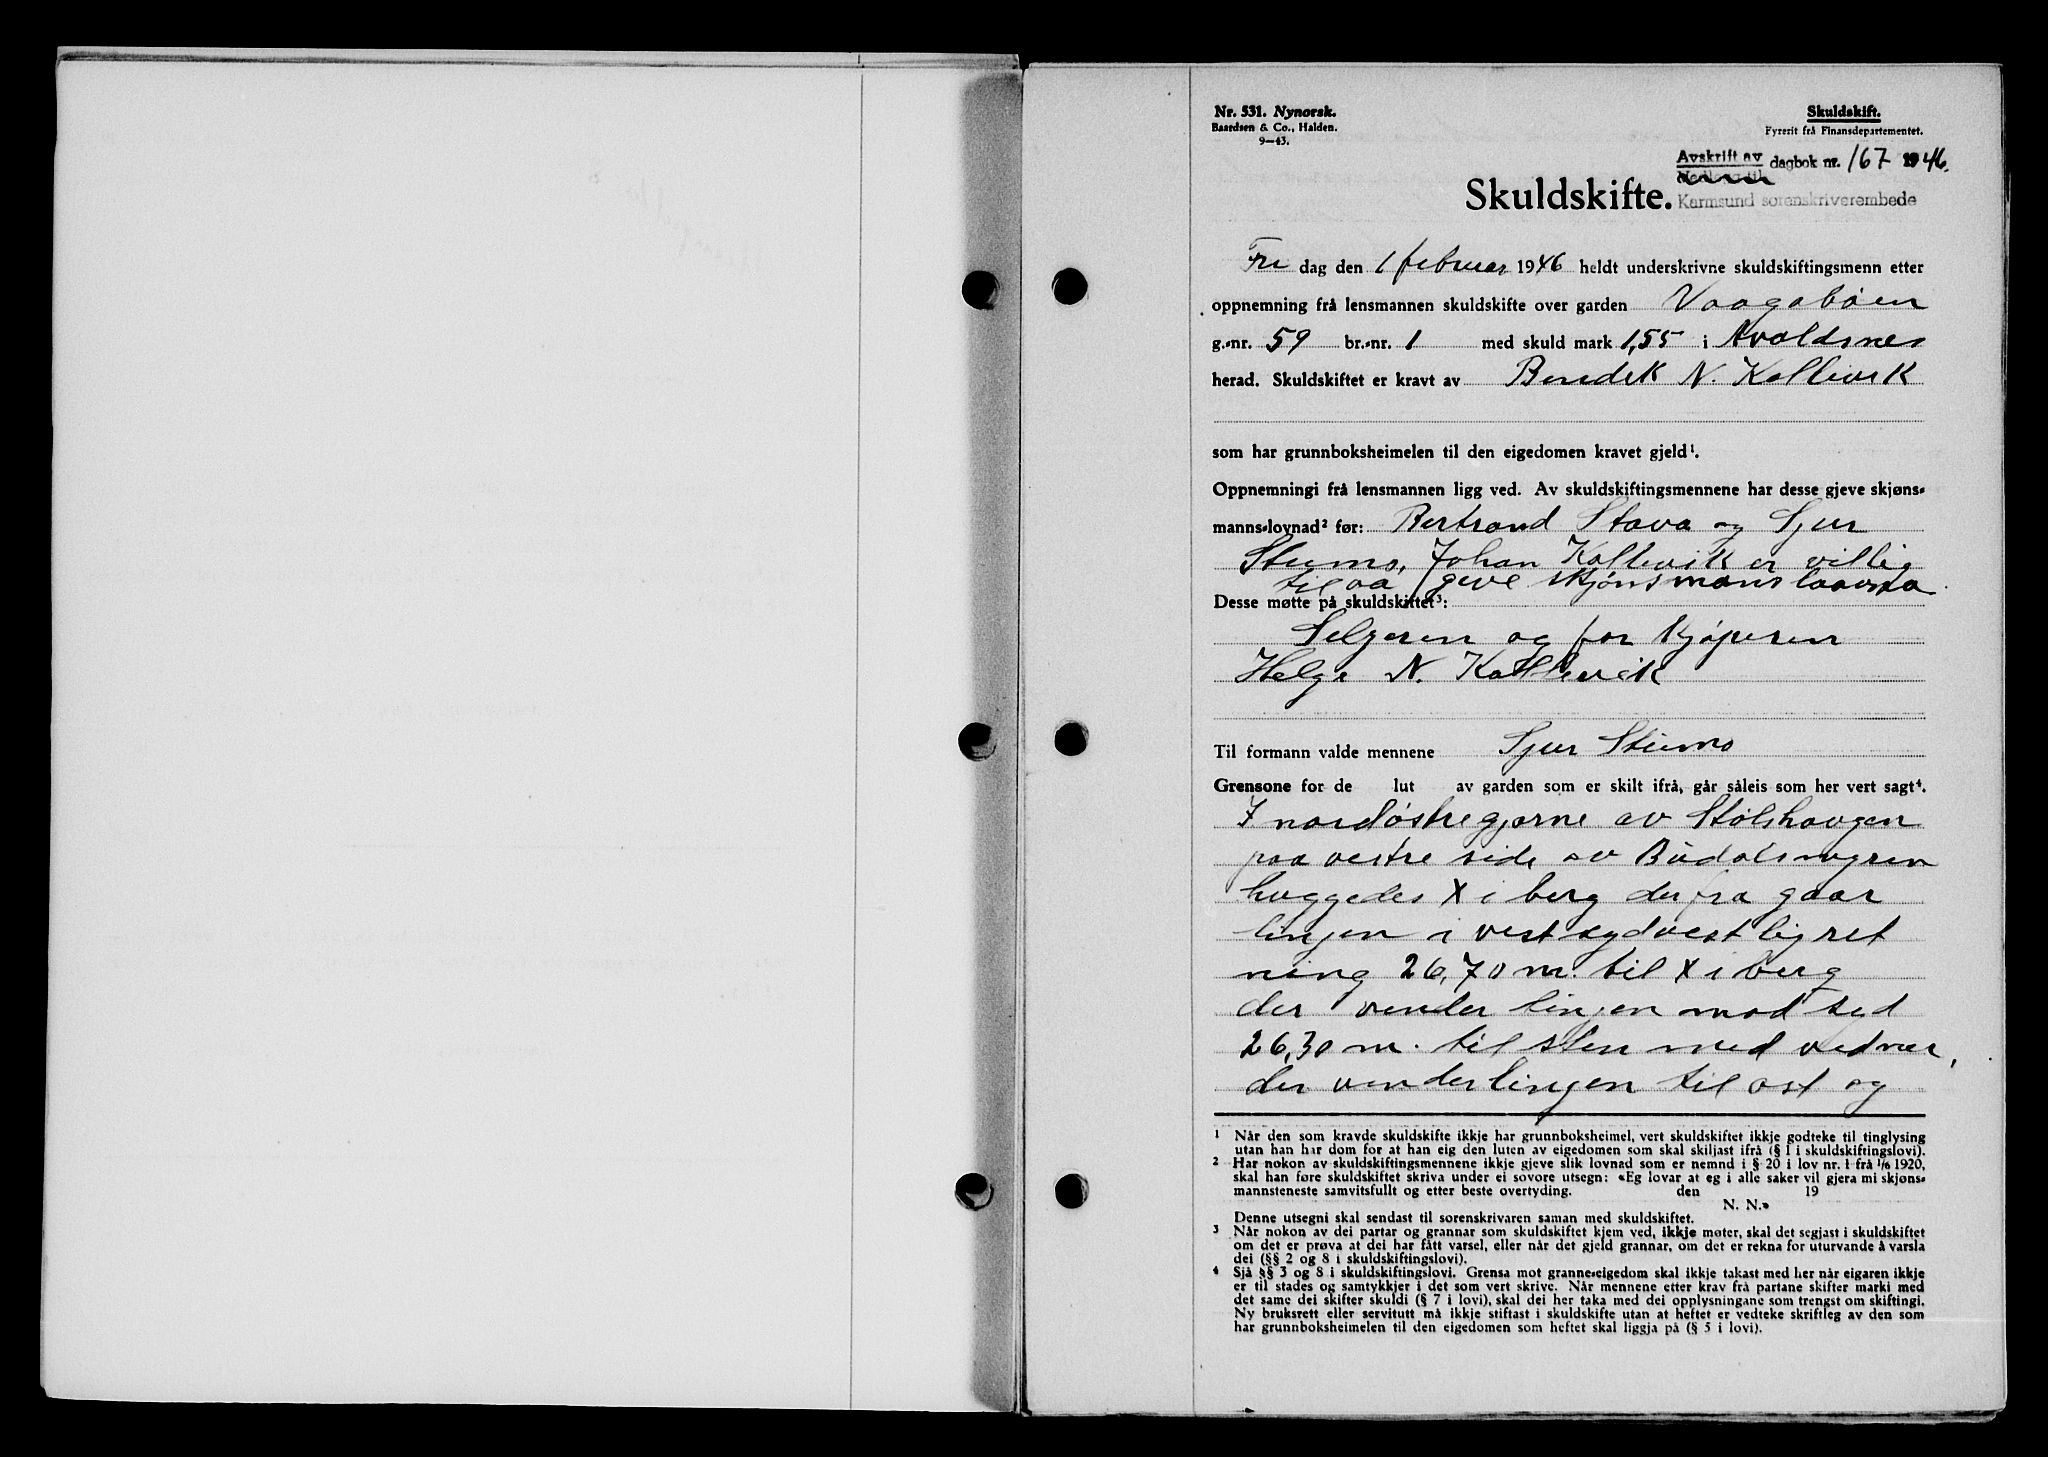 Nr. 531. Nynorsk.
Baardsen & Co., Halden.
9—43.
Skuldskift.
Fyrerit frå Finansdepartementet.
Avskrift av dagbok nr. 167 1946.
Karmsund sorenskriverembede
Skuldskifte.
Fre dag den 1 februar 1946 heldt underskrivne skuldskiftingsmenn etter
oppnemning frå lensmannen skuldskifte over garden Vaagabøen
g.-nr. 59 br.-nr. 1 med skuld mark 1,55 i Avaldsnes
herad. Skuldskiftet er kravt av Bendik N. Kallevik
som har grunnboksheimelen til den eigedomen kravet gjeld¹.
Oppnemningi frå lensmannen ligg ved. Av skuldskiftingsmennene har desse gjeve skjøns-
manns-lovnad² før: Bertrand Stava og Sjur
Stumo, Johan Kallevik er villig
til aa geve skjønsmanslaavna
Desse møtte på skuldskiftet³:
Selgeren og for kjøperen
Helge N. Kallevik
Til formann valde mennene Sjur Stumo
Grensone for de lut av garden som er skilt ifrå, går såleis som her vert sagt⁴.
I nordøstre gjørne av Stølshaugen
paa vestre side av Budalsmyren
huggedes X i berg der fra gaar
linjen i vestsydvestlig ret
ning 26,70 m. til X i berg
der vender linjen mod syd
26,30 m. til sten med vidner,
der vender lingen til ost og
¹ Når den som kravde skuldskifte ikkje har grunnboksheimel, vert skuldskiftet ikkje godteke til tinglysing
utan han har dom for at han eig den luten av eigedomen som skal skiljast ifrå (§ 1 i skuldskiftingslovi).
² Har nokon av skuldskiftingsmennene ikkje gjeve slik lovnad som er nemnd i § 20 i lov nr. 1 frå 1/6 1920,
skal han føre skuldskiftet skriva under ei sovore utsegn: «Eg lovar at eg i alle saker vil gjera mi skjøns-
mannsteneste samvitsfullt og etter beste overtyding. den 19
N. N.»
Denne utsegni skal sendast til sorenskrivaren saman med skuldskiftet.
³ Når nokon av dei partar og grannar som skuldskiftet kjem ved, ikkje møter, skal det segjast i skuldskiftet
om det er prøva at dei har fått varsel, eller når det gjeld grannar, om det er rekna for uturvande å varsla
dei (§§ 2 og 8 i skuldskiftingslovi).
⁴ Sjå §§ 3 og 8 i skuldskiftingslovi. Grensa mot granne-eigedom skal ikkje takast med her når eigaren ikkje
er til stades og samtykkjer i det som vert skrive. Når mennene etter krav frå partane skifter marki med
det same dei skifter skuldi (§ 7 i lovi), skal dei her taka med dei opplysningane som trengst om skiftingi.
Ny bruksrett eller servitutt må ikkje stiftast i skuldskifte utan at heftet er vedteke skriftleg av den som
har grunnboksheimelen til den eigedomen som heftet skal liggja på (§ 5 i lovi).